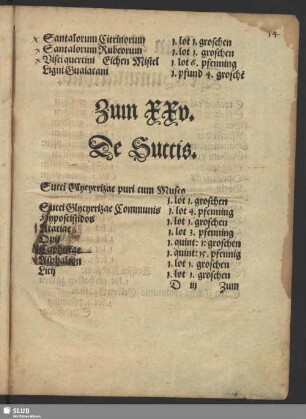 14
Santalorum Citrinorum 1. lot 1. groschen
Santalorum Rubeorum 1. lot 1. groschen
Visci quercini Eichen Mistel 1. lot 6. pfenning
Ligni Guaiatani 1. pfund 4. grosche
Zum XXv.
De Succis.
Succi Glycyrrizae puri cum Musco
1. lot 1. groschen
Succi Glycyrrizae Communis 1. lot 4. pfenning
Hypocistidos 1. lot 1. groschen
Acatiae 1. lot 3. pfenning
Opij 1. quint: 1: groschen
1. quint: 15. pfennig
1. lot 1. groschen
Licij 1. lot 1. groschen
D iij Zum
SLUB